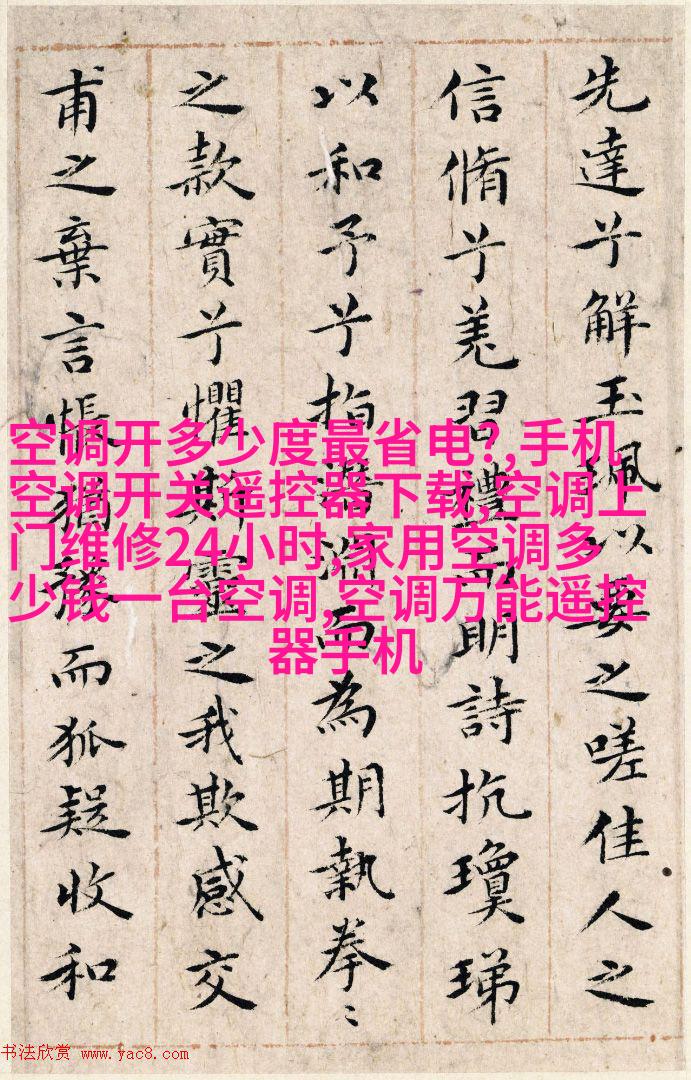 先達兮解玉珮以要之嗟佳人之
信脩兮羌習禮而明詩抗瓊珶
以和予兮指潛淵而為期執拳〻
之款實兮懼斯靈之我欺感交
甫之棄言悵猶豫而狐疑收和
空调开多少度最省电?,手机
空调开关遥控器下载,空调上
门维修24小时,家用空调多
少钱一台空调,空调万能遥控
器手机
书法欣赏 www.yac8.com